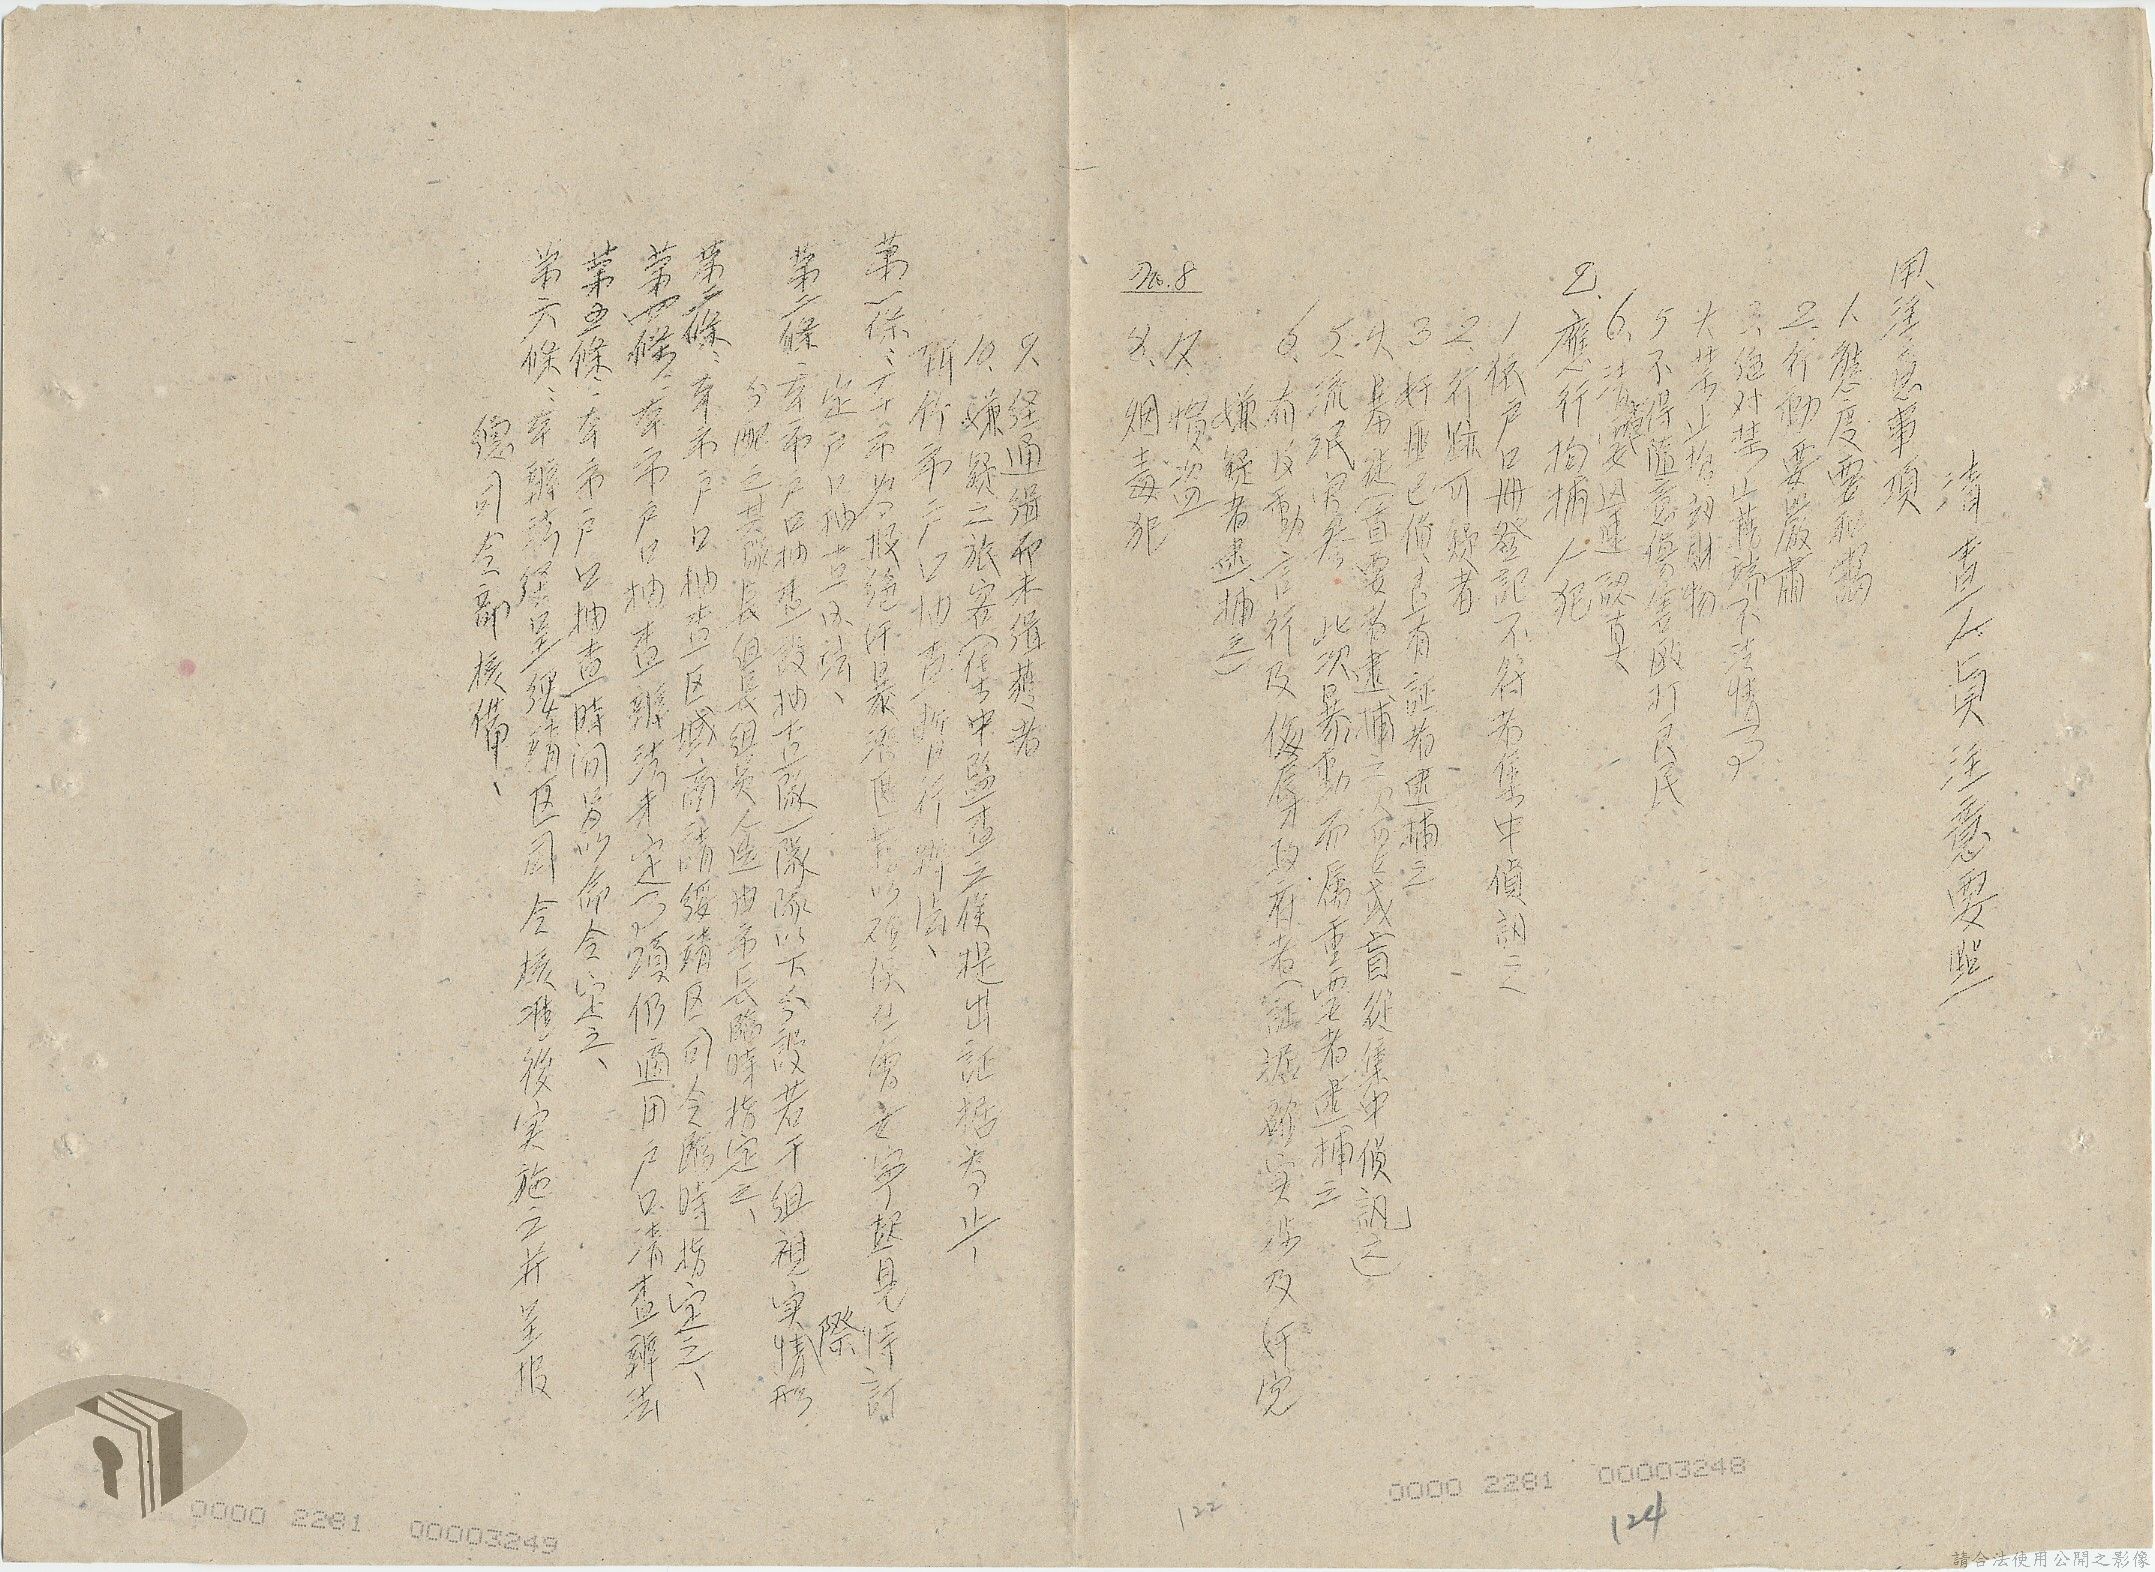 清查人員注意要點
甲、注意事項
1、態度要和藹
2、行動要嚴肅
3、絕對禁止藉端不法情事
4、禁止拾誘財物
5、不得隨意傷害敺打民民
6、清查要迅速認真
乙、應行拘捕人犯
1、依戶口冊登記不符者集中偵訊之
2、行跡可疑者
3、奸匪已偵查有証者逮捕之
4、暴徒(首要者逮捕之次要或盲從集中偵訊之)
5、流氓曾參 此次暴動而屬重要者逮捕之
6、有反動言行及侮辱政府者(証據確实涉及奸宄
嫌疑者逮捕之)
No.8
7、慣盜
8、烟毒犯
9、经通緝而未緝獲者
10、嫌疑之旅客(集中監查之候提出証據為止)
新竹市戶口抽查暫行辦法、
第一條、本市為根絕奸暴潛匿 以確保社會安寧起見特訂
定戶口抽查辦法、
第二條、本市戶口抽查設抽查隊一隊隊以下分設若干組視实際情形
分配之其隊長組長組員人選由市長臨時指定之、
第三條、本市戶口抽查区域商請綏靖区司令臨時指定之、
第四條、本市戶口抽查辦法未定事項仍適用戶口清查辦法
第五條、本市戶口抽查時间另以命令定之、
第六條、本辦法经呈綏靖区司令核准後实施之并呈报
總司令部核備、
122
124
0000 2281 00003248
0000 2281 00003249
請合法使用公開之影像